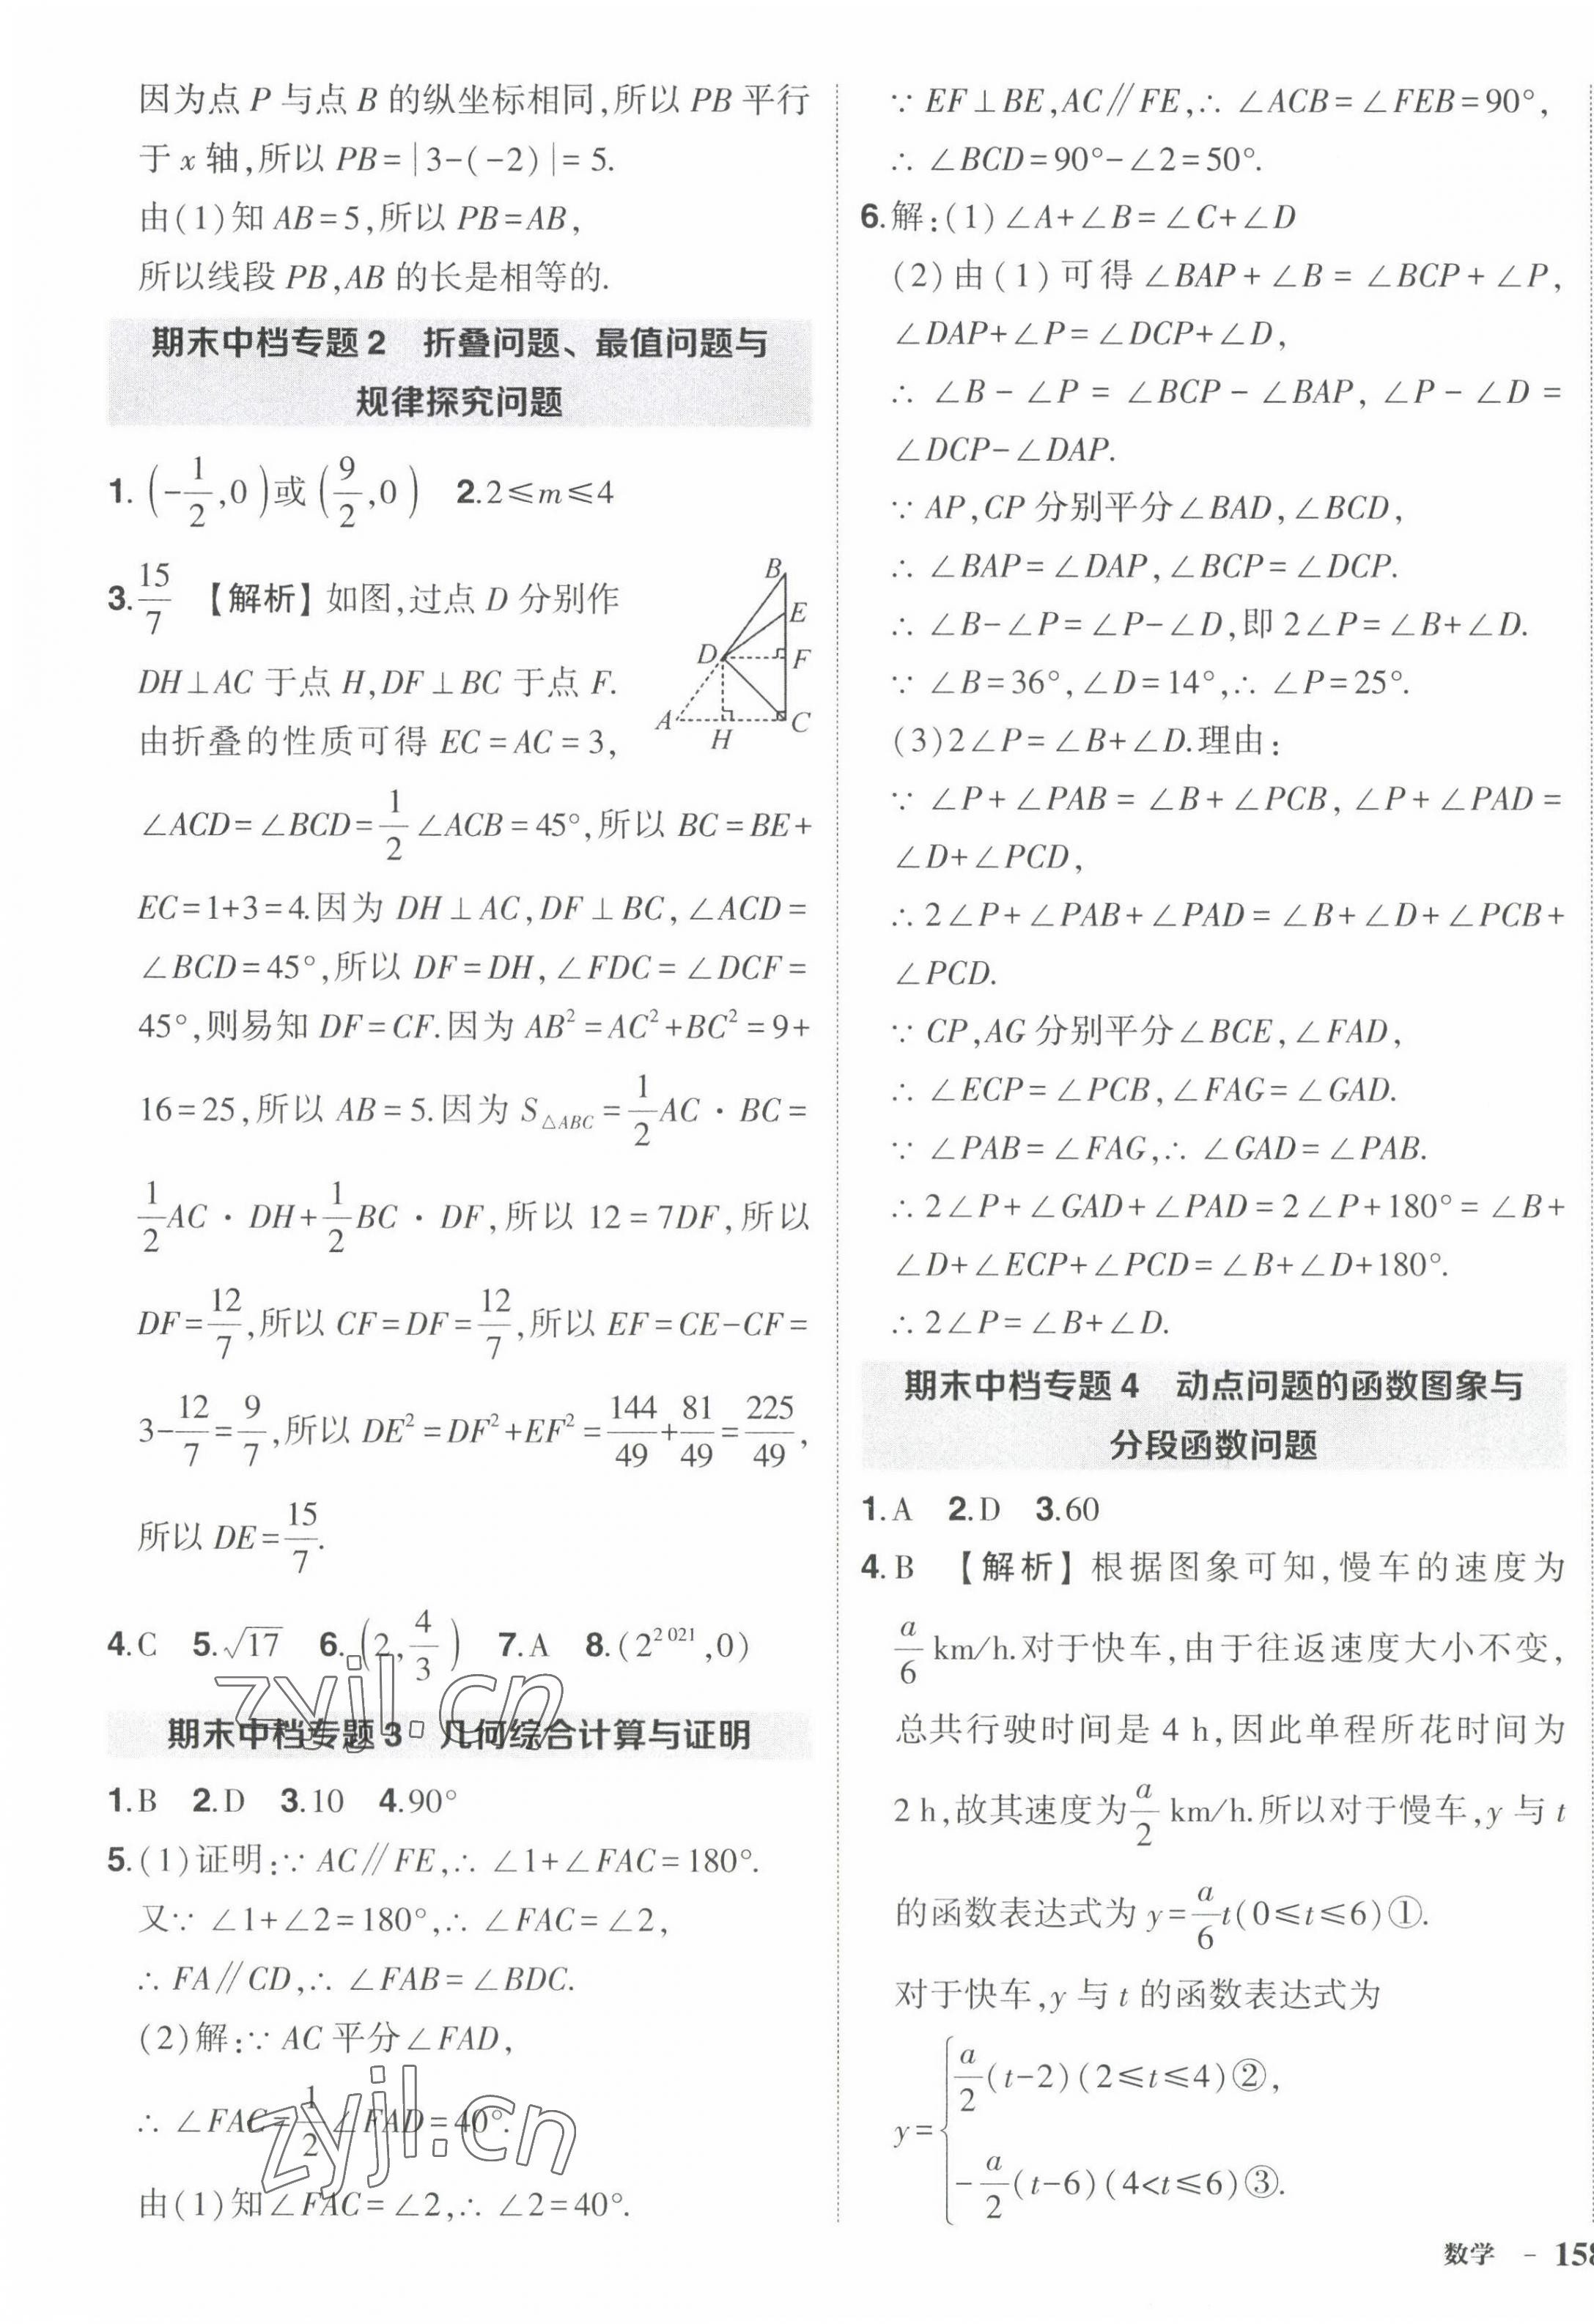 因为点 P 与点 B 的纵坐标相同,所以 PB 平行
于 x 轴,所以 PB=|3-(-2)|=5.
由(1)知 AB=5,所以 PB=AB,
所以线段 PB,AB 的长是相等的.
期末中档专题2 折叠问题、最值问题与
规律探究问题
1. (-1/2,0)或(9/2,0) 2.2≤m≤4
3. 15/7 【解析】如图,过点 D 分别作
DH⊥AC 于点 H,DF⊥BC 于点 F.
由折叠的性质可得 EC=AC=3,
B
E
D
F
A
H
C
∠ACD=∠BCD=1/2∠ACB=45°,所以 BC=BE+
EC=1+3=4.因为 DH⊥AC,DF⊥BC,∠ACD=
∠BCD=45°,所以 DF=DH,∠FDC=∠DCF=
45°,则易知 DF=CF.因为 AB²=AC²+BC²=9+
16=25,所以 AB=5.因为 S△ABC=1/2AC·BC=
1/2AC·DH+1/2BC·DF,所以 12=7DF,所以
DF=12/7,所以 CF=DF=12/7,所以 EF=CE-CF=
3-12/7=9/7,所以 DE²=DF²+EF²=144/49+81/49=225/49,
所以 DE=15/7.
4.C 5.√17 6.(2,4/3) 7.A 8.(2^2 021,0)
zyjl.cn
期末中档专题3 几何综合计算与证明
1.B 2.D 3.10 4.90°
5.(1)证明:∵ AC∥FE,∴ ∠1+∠FAC=180°.
又∵ ∠1+∠2=180°,∴ ∠FAC=∠2,
∴ FA∥CD,∴ ∠FAB=∠BDC.
(2)解:∵ AC 平分∠FAD,
∴ ∠FAC=1/2∠FAD=40°.
zyjl.cn
由(1)知∠FAC=∠2,∴ ∠2=40°.
∵ EF⊥BE,AC∥FE,∴ ∠ACB=∠FEB=90°,
∴ ∠BCD=90°-∠2=50°.
6.解:(1)∠A+∠B=∠C+∠D
(2)由(1)可得∠BAP+∠B=∠BCP+∠P,
∠DAP+∠P=∠DCP+∠D,
∴ ∠B-∠P=∠BCP-∠BAP,∠P-∠D=
∠DCP-∠DAP.
∵ AP,CP 分别平分∠BAD,∠BCD,
∴ ∠BAP=∠DAP,∠BCP=∠DCP.
∴ ∠B-∠P=∠P-∠D,即2∠P=∠B+∠D.
∵ ∠B=36°,∠D=14°,∴ ∠P=25°.
(3)2∠P=∠B+∠D.理由:
∵ ∠P+∠PAB=∠B+∠PCB,∠P+∠PAD=
∠D+∠PCD,
∴ 2∠P+∠PAB+∠PAD=∠B+∠D+∠PCB+
∠PCD.
∵ CP,AG 分别平分∠BCE,∠FAD,
∴ ∠ECP=∠PCB,∠FAG=∠GAD.
∵ ∠PAB=∠FAG,∴ ∠GAD=∠PAB.
∴ 2∠P+∠GAD+∠PAD=2∠P+180°=∠B+
∠D+∠ECP+∠PCD=∠B+∠D+180°.
∴ 2∠P=∠B+∠D.
期末中档专题4 动点问题的函数图象与
分段函数问题
1.A 2.D 3.60
4.B 【解析】根据图象可知,慢车的速度为
a/6 km/h.对于快车,由于往返速度大小不变,
总共行驶时间是 4 h,因此单程所花时间为
2 h,故其速度为 a/2 km/h.所以对于慢车,y 与 t
的函数表达式为 y=a/6 t(0≤t≤6)①.
对于快车,y 与 t 的函数表达式为
y={ a/2(t-2)(2≤t≤4)②,
-a/2(t-6)(4<t≤6)③.
数学 - 158